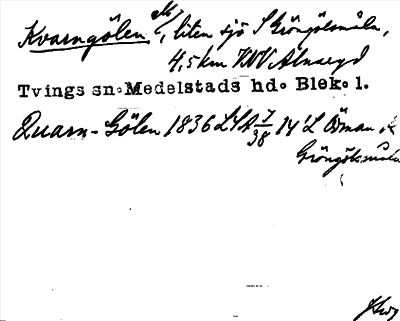 Kvarngölen, liten sjö S Gröngölsmåla,
4,5 km VNV Alnaryd
Tvings sn. Medelstads hd. Blek. l.
Quarn-Gölen 1836 LSA 7/38 14 L Öman,
Gröngölsmåla